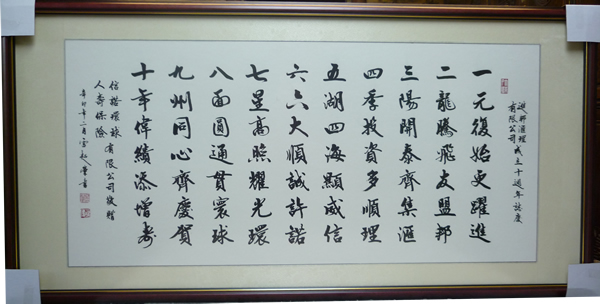 進邦滙理
有限公司成立十週年誌慶
一元復始更躍進
二龍騰飛友盟邦
三陽開泰齊集滙
四季投資多順理
五湖四海顯威信
六六大順誠許諾
七星高照耀光環
八面圓通貫寰球
九州同心齊慶賀
十年偉績添增壽
信諾環球有限公司敬贈
人壽保險
辛卯年二月
書